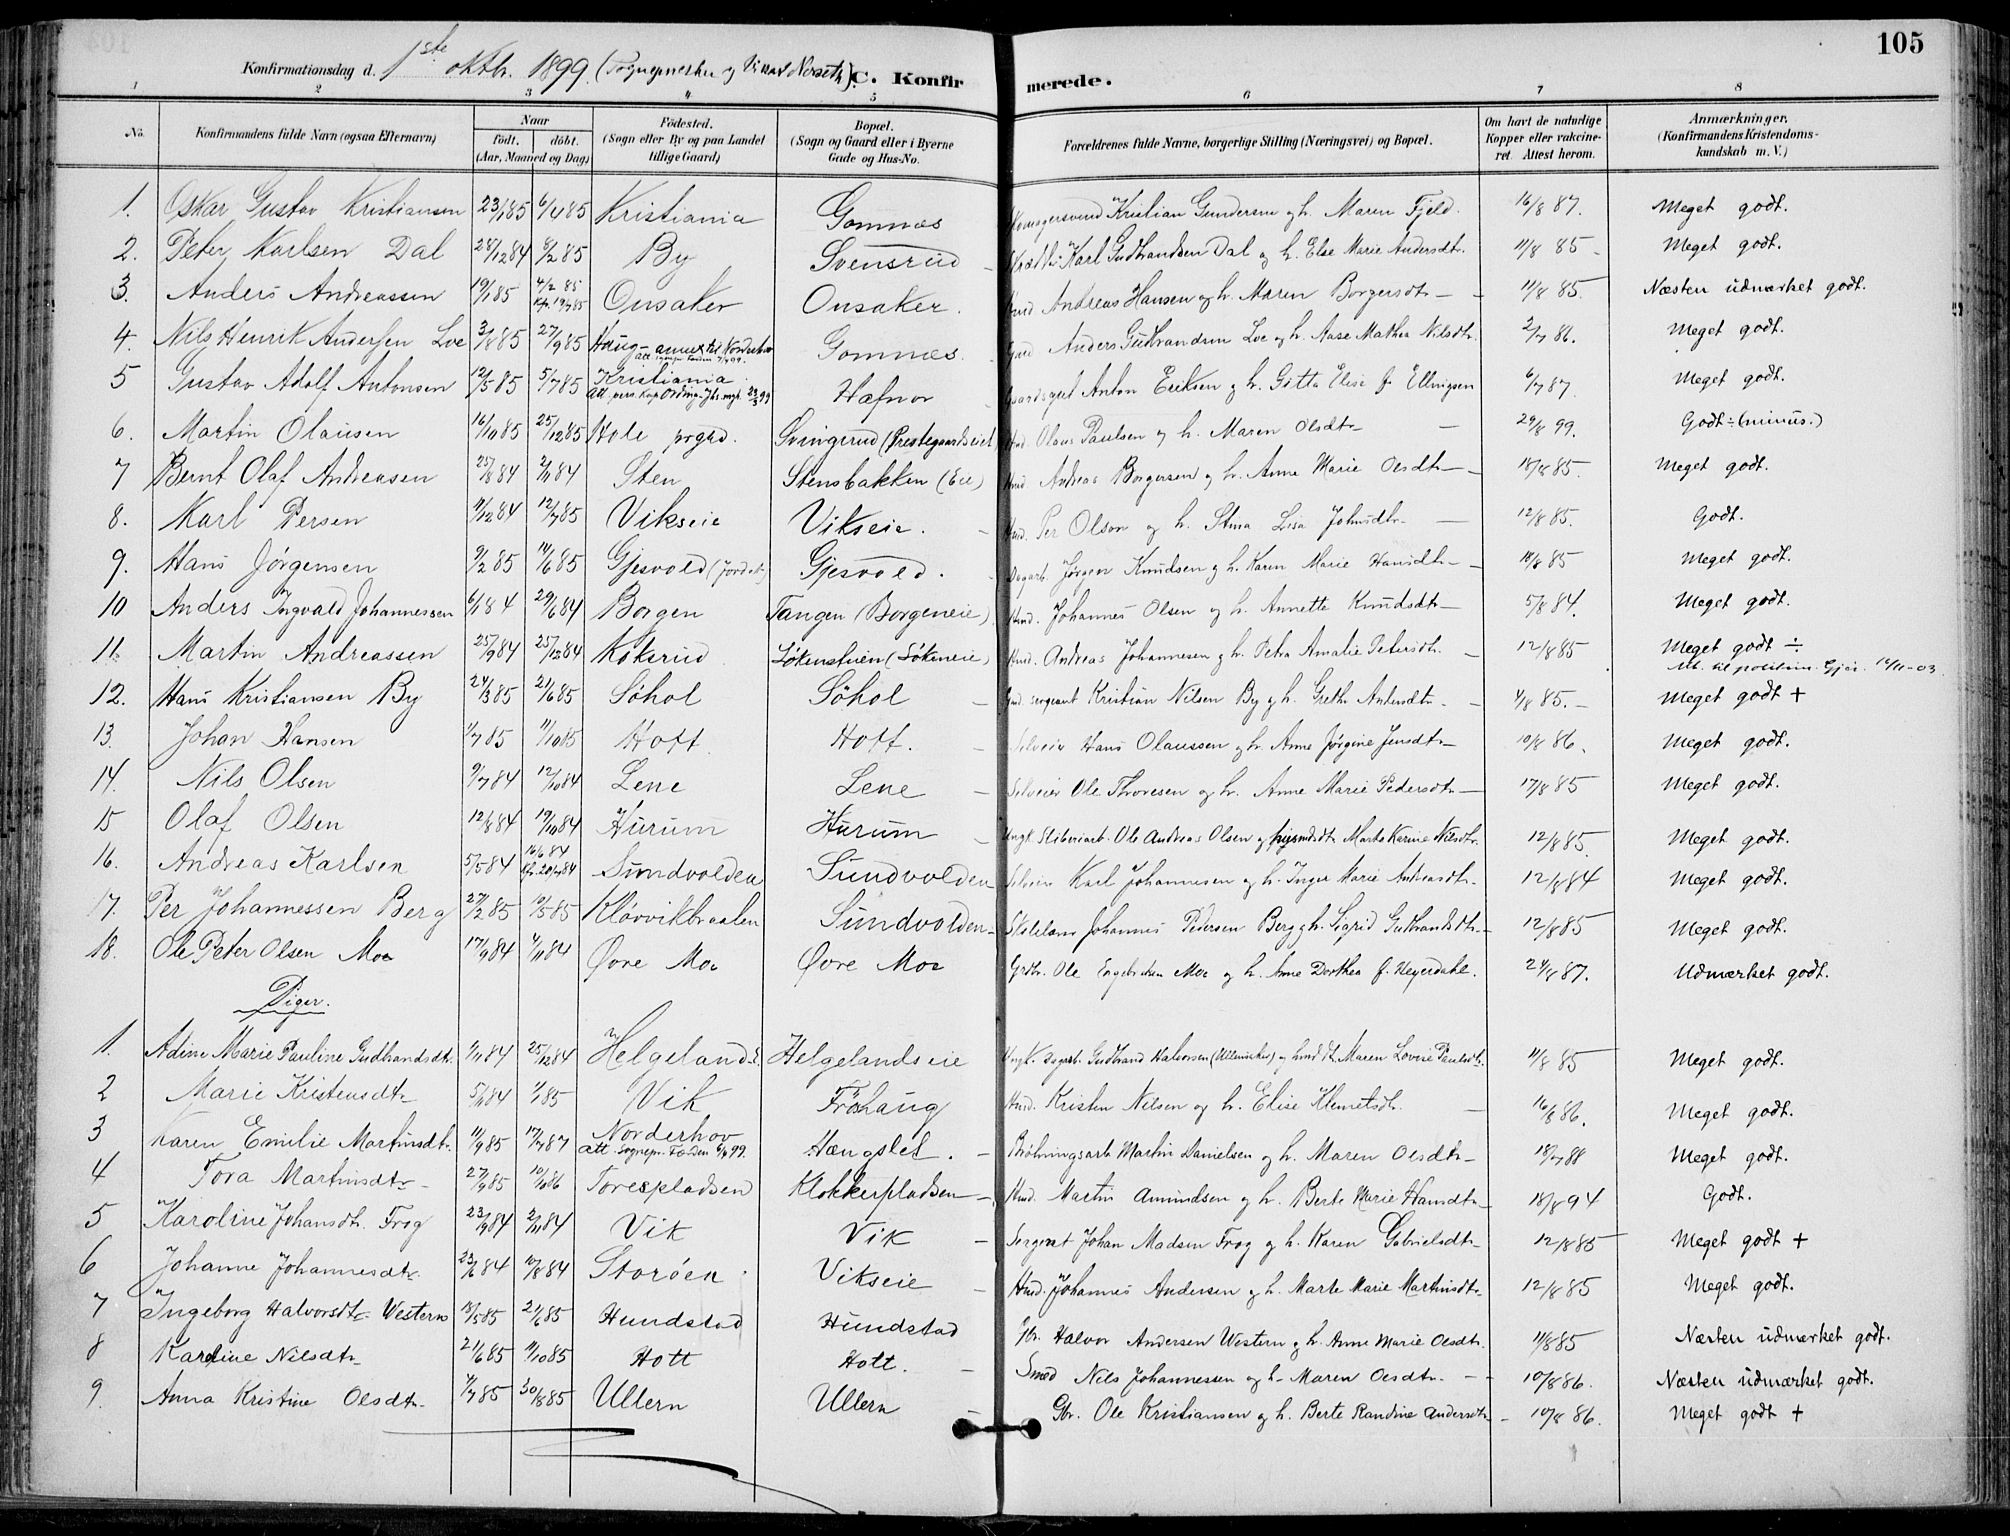 105
Konfirmationsdag d. 1ste oktbr. 1899. (Sogneprester og Vikar Neseth). C. Konfirmerede.
1 2 3 4 5 6 7 8
No. Konfirmandens fulde Navn (ogsaa Efternavn) Naar født. døbt. (Aar, Maaned og Dag) Fødested. (Sogn eller By og paa Landet tillige Gaard) Bopæl. (Sogn og Gaard eller i Byerne Gade og Hus-No. Forældrenes fulde Navne, borgerlige Stilling (Næringsvei) og Bopæl. Om havt de naturlige Kopper eller vakcineret. Attest herom. Anmærkninger. (Konfirmandens Kristendomskundskab m. V.)
1. Oskar Gustav Kristiansen 23/1 85 6/4 85 Kristiania Gomnæs Kristian Gundersen og h. Maren Fjeld. 16/8 87. Meget godt.
2. Peter Karlsen Dal 28/12 84 8/2 85 By Svensrud Karl Gudbrandsen Dal og h. Else Marie Andersdtr. 11/8 85 - Meget godt.
3. Anders Andreassen 19/1 85 4/2 85 Kfr. 19/7 85 Onsaker Onsaker. Hmd Andreas Hansen og h. Maren Borgersdtr - 11/8 85. Næsten udmærket godt.
4. Nils Henrik Andersen Loe 3/8 85 27/9 85 Haug - annex til Norderhov Att. sognepr. Færden 7/4 99. Gomnæs. Anders Gudbrandsen Loe og h. Aase Mathea Nilsdtr. 2/7 86. Meget godt.
5 Gustav Adolf Antonsen 12/5 85 5/7 85 Kristiania. Att. pers. Kap. Hafnor Anton Eriksen og h. Gitta Elise f. Ellingsen 6/7 87 Meget godt.
6. Martin Olausen 16/10 85 25/12 85 Hole prgd. Svingerud (Prestegaardseiet) Hmd. Olaus Paulsen og h. Maren Olsdtr - 29/8 99. Godt ÷ (minus.)
7 Bernt Olaf Andreasen 25/8 84 2/11 84 Sten Stensbakken (Eie) Hmd. Andreas Borgersen og h. Anne Marie Olsdtr - 18/8 85. Meget godt.
8. Karl Persen 11/12 84 12/7 85 Vikseie Vikseie. Hmd. Per Olson og h. Stina Lisa Johnsdtr. - 12/8 85. Godt.
9. Hans Jørgensen 9/2 85 14/6 85 Gjesvold (Jordet) Gjesvold. Dagarb. Jørgen Knudsen og h. Karen Marie Hansdtr - 18/8 85 Meget godt.
10 Anders Ingvald Johannessen 6/1 84 29/6 84 Borgen Tangen (Borgeneie). Hmd. Johannes Olsen og h. Annette Knudsdtr - 5/8 84. Meget godt.
11. Martin Andreassen 25/9 84 25/12 84 Koksrud Løkenstuen (Løkeneie) Hmd. Andreas Johannesen og h. Petra Amalie Petersdtr. 12/8 85 Meget godt ÷
14/11-03.
12. Hans Kristiansen By 24/3 85 21/6 85 Søhol Søhol Gmd. sergeant Kristian Nilsen By og h. Grethe Antonsdtr - 4/8 85. - Meget godt +
13. Johan Hansen 1/7 85 11/10 85 Hott. Hott. Selveier Hans Olaussen og h. Anne Jørgine Jensdtr - 10/8 86. Meget godt.
14. Nils Olsen 9/7 84 12/10 84 Lene Lene Selveier Ole Thoresen og h. Anne Marie Pedersdtr - 17/8 85 Meget godt.
15 Olaf Olsen 12/8 84 19/10 84 Hurum Hurum Ungk. Sliberiarb. Ole Andreas Olsen og Marte Karine Nilsdtr. 12/8 85. Meget godt.
16. Andreas Karlsen 5/5 84 16/6 84 Kfr. 20/7 84 Sundvolden Sundvolden Selveier Karl Johannesen og h. Inger Marie Andreasdtr. 12/8 84 Meget godt.
17. Per Johannessen Berg 27/2 85 10/5 85 Kløvvikbraaten Sundvolden Johannes Pedersen Berg og h. Sigrid Gudbrandsdtr - 12/8 85 Meget godt.
18. Ole Peter Olsen Moe 17/9 84 2/11 84 Øvre Moe Øvre Moe Grdbr. Ole Engebretsen Moe og h. Anne Dorthea f. Heyerdahl. 24/8 87. Udmærket godt.
Piger.
1. Adine Marie Pauline Gudbrandsdtr. 1/11 84 25/12 84 Helgelands. Helgelandseie Ungk. Dagarb. Gudbrand Halvorsen og Maren Lovise Paulsdtr. 11/8 85 Meget godt.
2 Marie Kristensdtr 5/11 84 1/1 85 Vik Frøhaug Hmd. Kristen Nilsen og h. Elise Klemetsdtr. 16/8 86. Meget godt.
3 Karen Emilie Martinsdtr. 11/9 85 17/7 87 Norderhov Att. Sognepr. Færden 6/4 99. Hængslet. Martin Danielsen og h. Maren Olsdtr - 18/7 88 Meget godt.
4 Tora Martinsdtr. 27/9 85 10/1 86 Torespladsen Klokkerpladsen Hmd. Martin Amundsen og h. Berte Marie Hansdtr - 18/8 94 Godt.
5 Karoline Johansdtr. Frog 23/9 84 2/11 84 Vik Vik Sergeant Johan Madsen Frog og h. Karen Gabrielsdtr - 12/8 85 Meget godt +
6 Johanne Johannesdtr. 23/6 84 10/8 84 Storøen Vikseie Hmd. Johannes Andersen og h. Marte Marie Martinsdtr - 12/8 85 Meget godt.
7 Ingeborg Halvorsdtr. Western 18/5 85 21/6 85 Hundstad Hundstad Gbr. Halvor Andersen Western og h. Anne Marie Olsdtr. 11/8 85 Næsten udmærket godt.
8 Karoline Nilsdtr 21/6 85 11/10 85 Hott Hott. Smed Nils Johannessen og h. Maren Olsdtr. - 10/8 86. Næsten udmærket godt.
9. Anna Kristine Olsdtr. 7/7 85 30/8 85 Ullern Ullern Gbr. Ole Kristiansen og h. Berte Randine Andersdtr - 10/8 86. Meget godt +